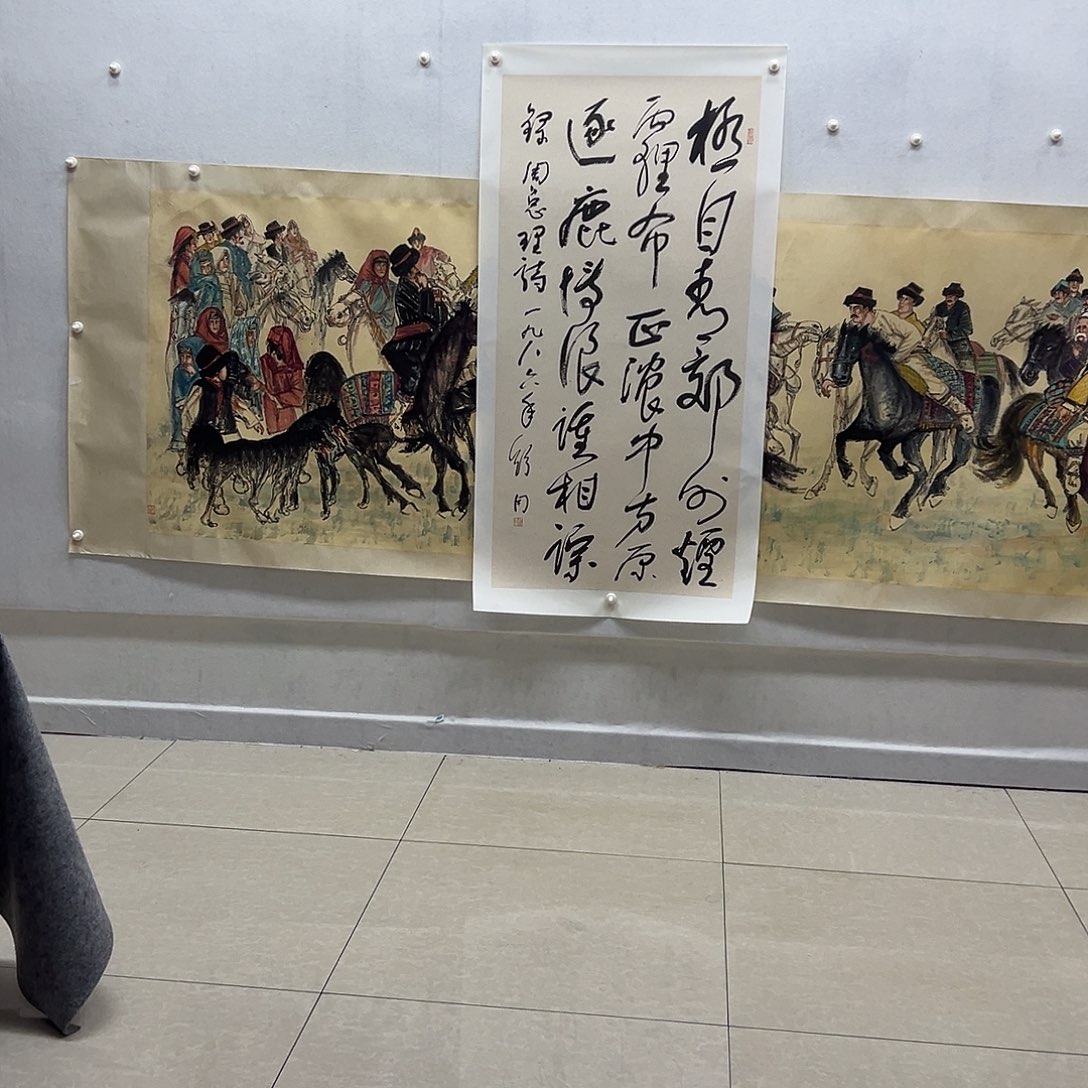 極目青郊外煙
霾布正濃中方原
逐鹿博浪踵相踪
錄周总理詩 一九八六年